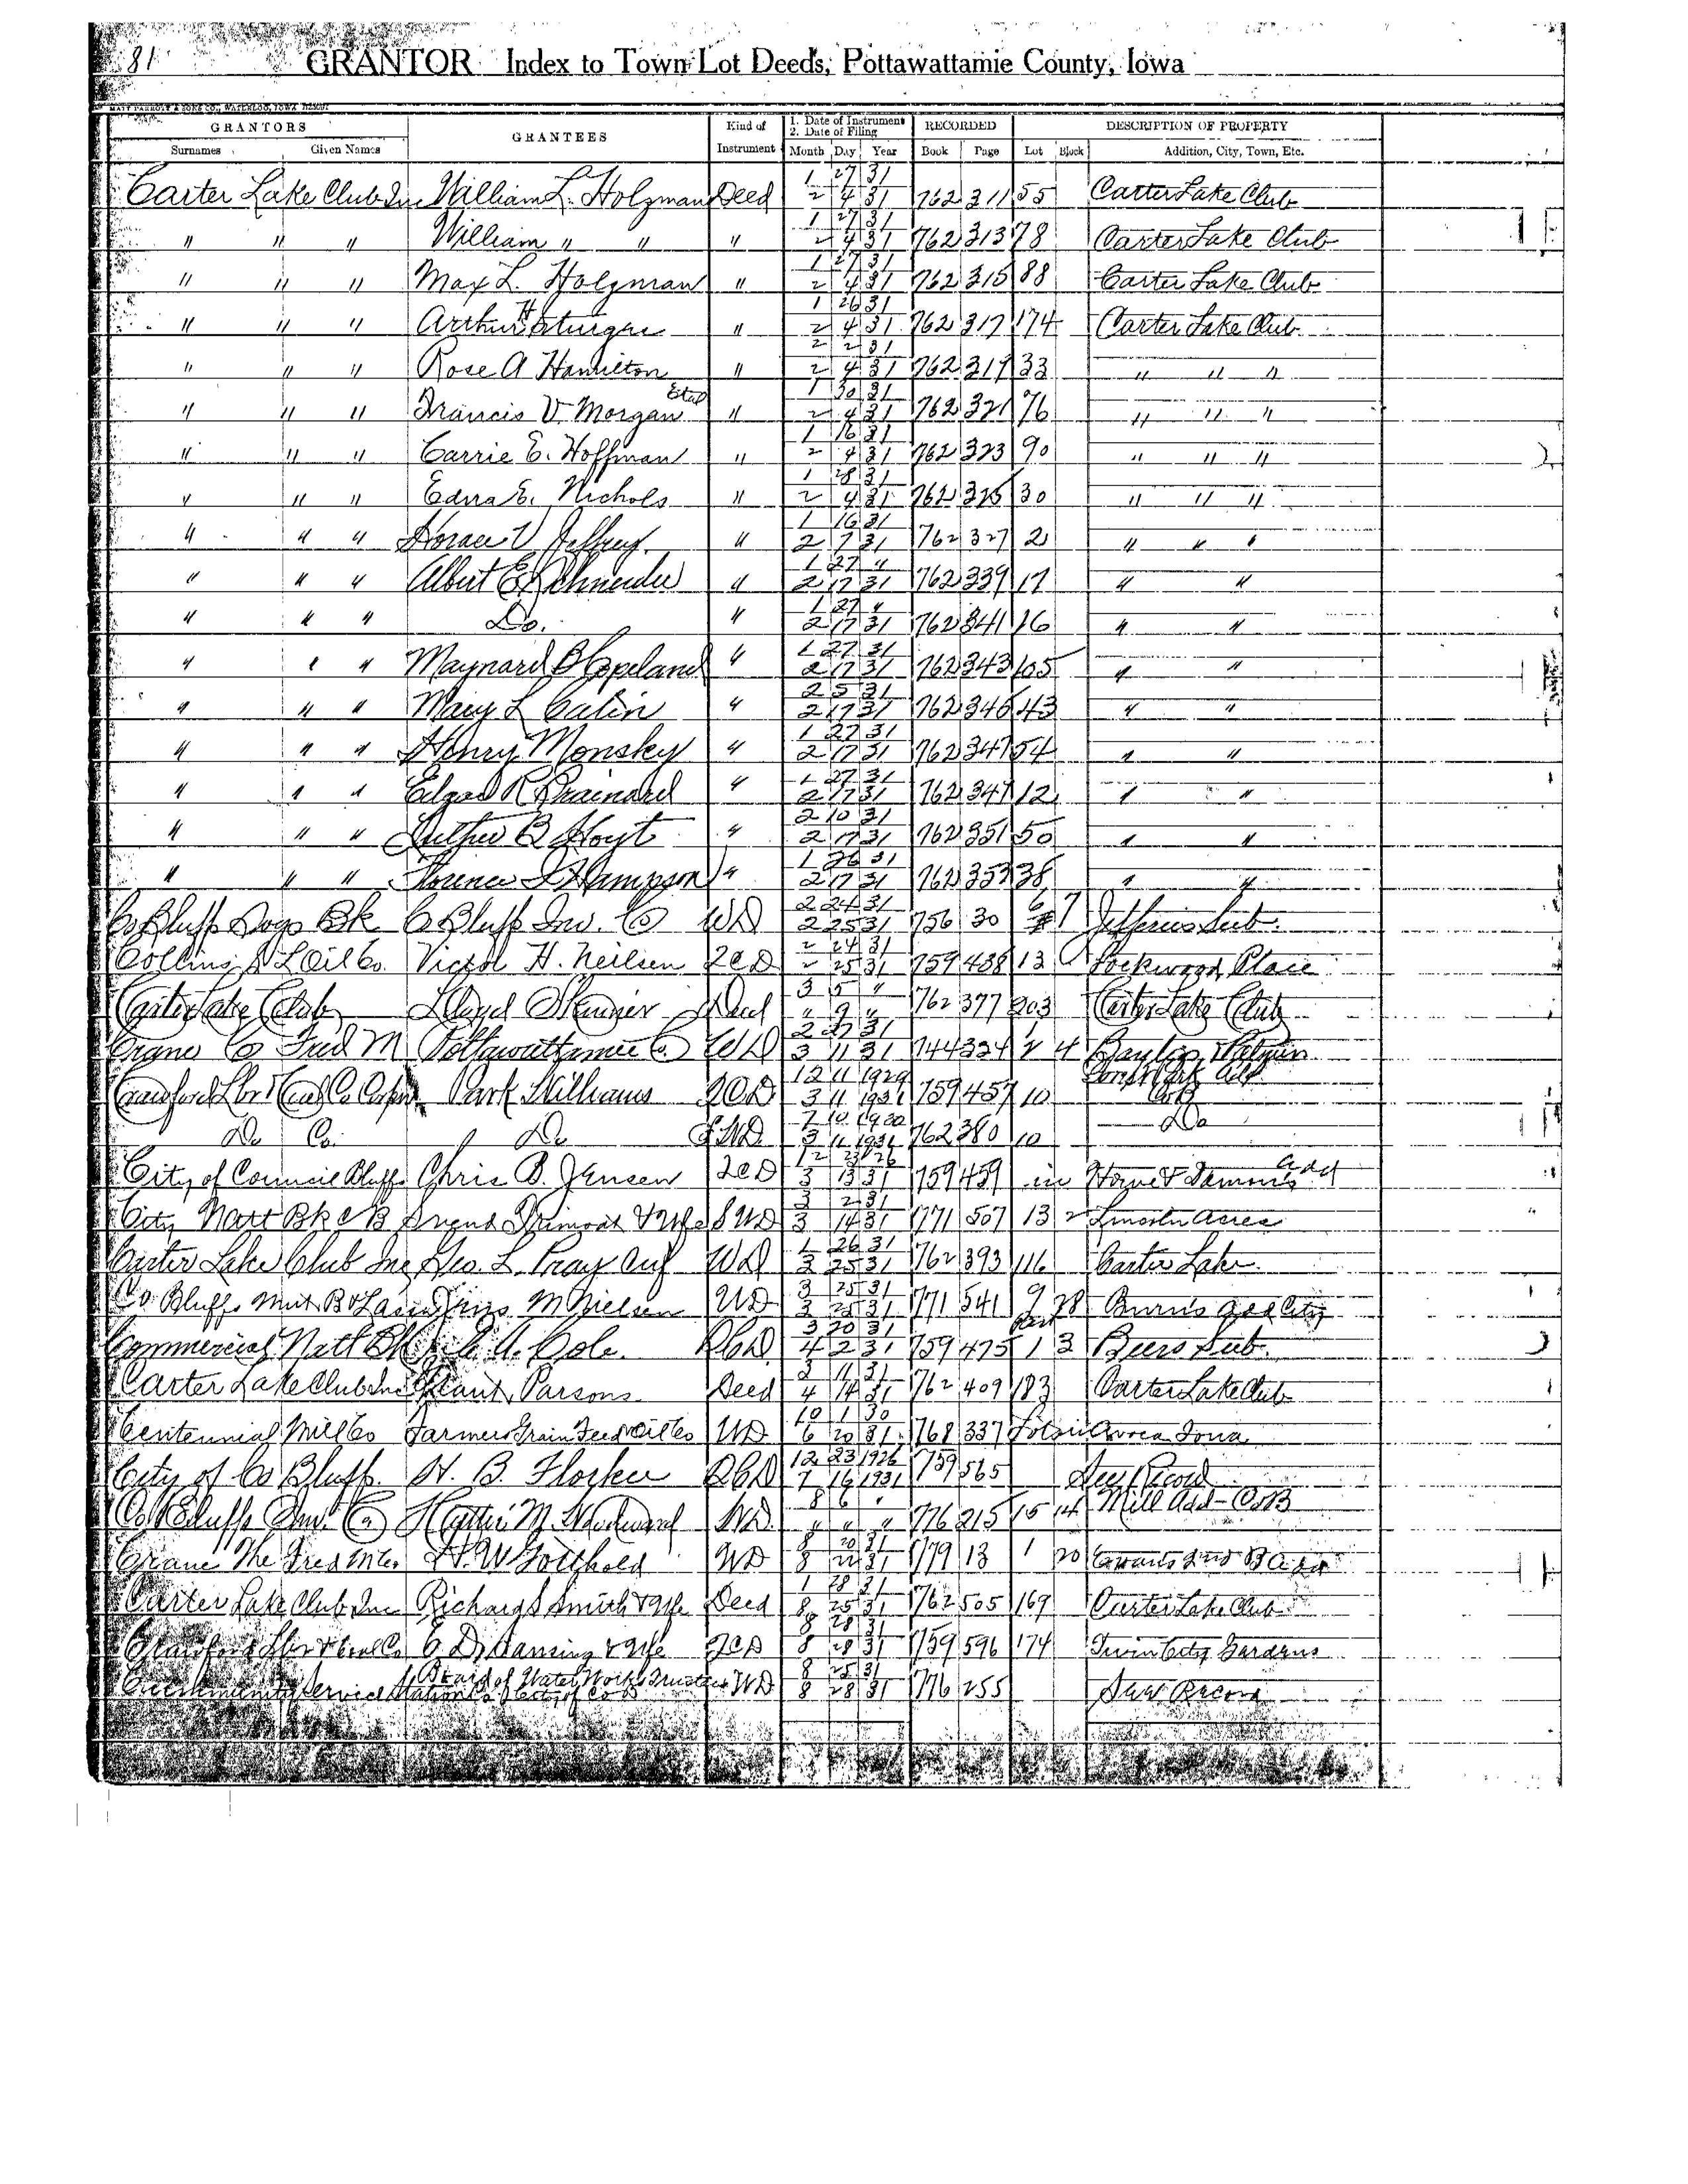 81
GRANTOR Index to Town Lot Deeds, Pottawattamie County, Iowa
MATT PARROTT & SONS CO., WATERLOO, IOWA
GRANTORS GRANTEES Kind of Instrument 1. Date of Instrument 2. Date of Filing RECORDED DESCRIPTION OF PROPERTY
Surnames Given Names Month Day Year Book Page Lot Block Addition, City, Town, Etc.
1 27 31
Carter Lake Club Inc William L. Holzman Deed 2 4 31 762 311 55 Carter Lake Club
1 27 31
" " " William " " " 2 4 31 762 313 78 Carter Lake Club
1 27 31
" " " Max L. Holzman " 2 4 31 762 315 88 Carter Lake Club
1 26 31
" " " Arthur H " 2 4 31 762 317 174 Carter Lake Club
2 2 31
" " " Rose A Hamilton " 2 4 31 762 319 33 " " "
1 30 31
" " " Francis V. Morgan Etal " 2 4 31 762 321 76 " " "
1 16 31
" " " Carrie E. Hoffman " 2 4 31 762 323 90 " " "
1 28 31
" " " Edna E. Nichols " 2 4 31 762 325 30 " " "
1 16 31
" " " Horace V Jeffrey " 2 7 31 762 327 2 " " "
1 27 "
" " " Albert E Schneider " 2 17 31 762 339 17 " "
1 27 "
" " " Do. " 2 17 31 762 341 16 " "
1 27 31
" " " Maynard B Copeland " 2 17 31 762 343 105 " "
2 5 31
" " " Mary L " 2 17 31 762 43 " "
1 27 31
" " " Henry Monsky " 2 17 31 762 347 54 " "
1 27 31
" " " Edgar R Brainard " 2 17 31 762 12 " "
2 10 31
" " " B Hoyt " 2 17 31 762 351 50 " "
1 26 31
" " " Florence Hampson " 2 17 31 762 353 38 " "
2 24 31
Co Bluff Svgs Bk C Bluff Inv. Co WD 2 25 31 756 30 6 7 Jefferis Sub.
2 24 31
Collins Oil Co. Victor H. Neilsen QCD 2 25 31 759 438 13 Lockwood Place
3 5 "
Carter Lake Club Lloyd Skinner Deed " 9 " 762 377 203 Carter Lake Club
2 27 31
Crane Co Fred M Pottawattamie Co WD 3 11 31 744 324 2 4 Bayliss & Palmer
12 11 1929
Crawford Lbr & Coal Co Park Williams QCD 3 11 1931 759 457 10
7 10 1930
Do Co. Do SWD 3 11 1931 762 380 10 Do
12 23 26
City of Council Bluffs Chris B. Jensen QCD 3 13 31 759 459 in Howe & Add
3 2 31
City Natl Bk C B & Wife SWD 3 14 31 771 507 13 2 Lincoln Acres
1 26 31
Carter Lake Club Inc Geo. L. Pray WD 3 25 31 762 393 116 Carter Lake
3 25 31
Co Bluffs Mut B & L Jens M Nielsen WD 3 25 31 771 541 9 28 Burns Add City
3 20 31
Commercial Natl Bk A. Cole QCD 4 2 31 759 475 part 1 3 Beers Sub.
3 11 31
Carter Lake Club Inc Grant Parsons Deed 4 14 31 762 409 183 Carter Lake Club
10 1 30
Centennial Mill Co Farmers Grain Feed & Oil Co WD 6 20 31 768 337 Lots in Avoca Iowa
12 23 1926
City of Co Bluff H. B. QCD 7 16 1931 759 565 See Record
8 6 "
Co Bluffs Inv. Co Hattie M. Woodward WD " " " 776 215 15 14 Mill Add - CoB
8 20 31
Crane The Fred M Co H. W Gotthold WD 8 22 31 779 13 1 20
1 28 31
Carter Lake Club Inc Richard S Smith & Wife Deed 8 25 31 762 505 169 Carter Lake Club
8 28 31
Crawford Lbr & Coal Co C. D. Lansing & Wife QCD 8 28 31 759 596 174 Twin City Gardens
8 25 31
Community Service Station Co Board of Water Works Trustees City of Co B WD 8 28 31 776 255 See Record